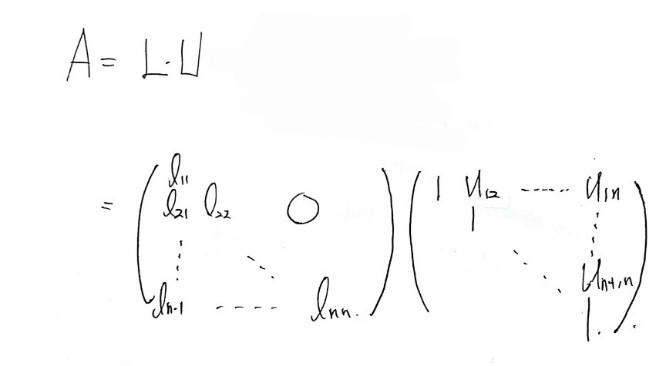 A = L·U
= ( l₁₁
l₂₁ l₂₂ ○
⋮ ⋱
lₙ₋₁ ------ lₙₙ. ) ( 1 u₁₂ ------ u₁ₙ
1 ⋮
⋱ uₙ₊₁,ₙ
1. )